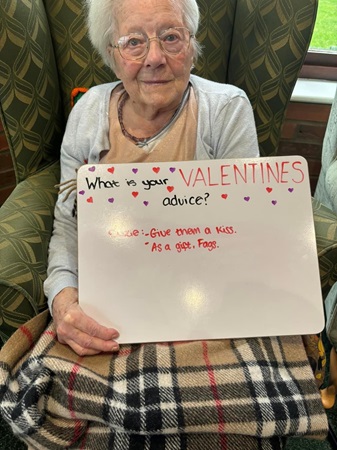 What is your VALENTINES
advice?
:-Give them a kiss.
-As a gift, Fags.